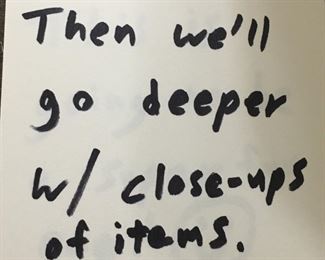 Then we'll
go deeper
w/ close-ups
of items.